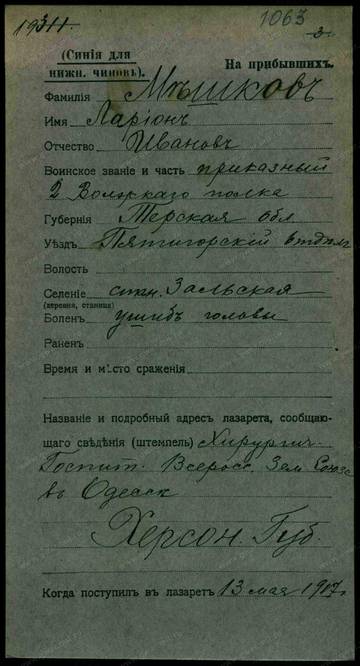 1063
(Синія для
нижн. чиновъ).
На прибывшихъ.
Фамилія Мѣшковъ
Имя Ларіонъ
Отчество Ивановъ
Воинское званіе и часть приказный
2 Волжскаго полка
Губернія Терская обл
Уѣздъ Пятигорскій отдѣл
Волость
Селеніе стан. Зольская
(деревня, станица)
Боленъ ушибъ головы
Раненъ
Время и мѣсто сраженія
Названіе и подробный адресъ лазарета, сообщаю-
щаго свѣдѣнія (штемпель) Хирургич.
Госпит. Всеросс. Зем. Союза
въ Одессѣ
Херсон. Губ.
Когда поступилъ въ лазаретъ 13 мая 1917